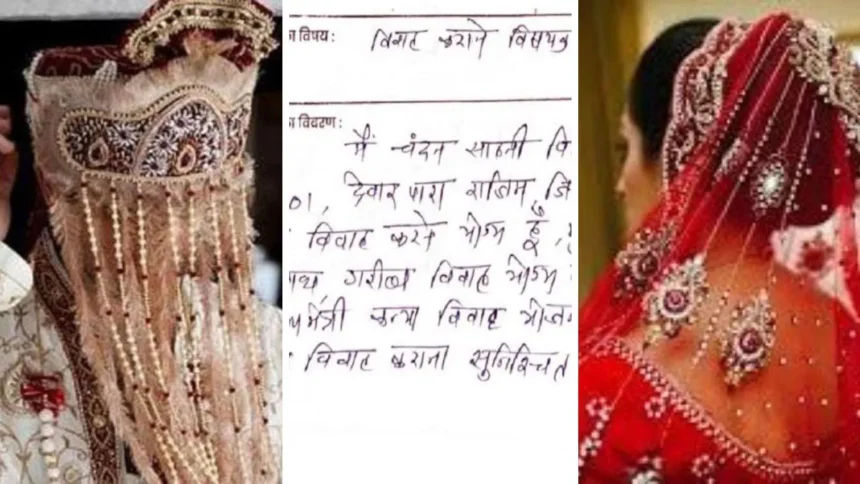 विषय: विवाह कराने विषयक
विवरण:
मैं चंदन साहनी वि
01, देवार पारा राजिम, जि
विवाह करने योग्य हूँ,
गरीब विवाह योग्य
कन्या विवाह योजन
विवाह कराना सुनिश्चित